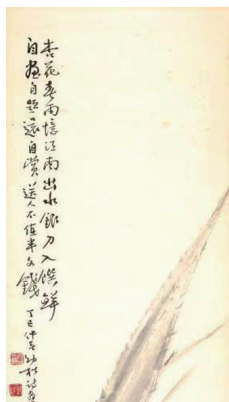 杏花春雨憶江南出水銀刀入饌鮮
自畫自題還自賞送人不值半文錢
丁巳仲冬